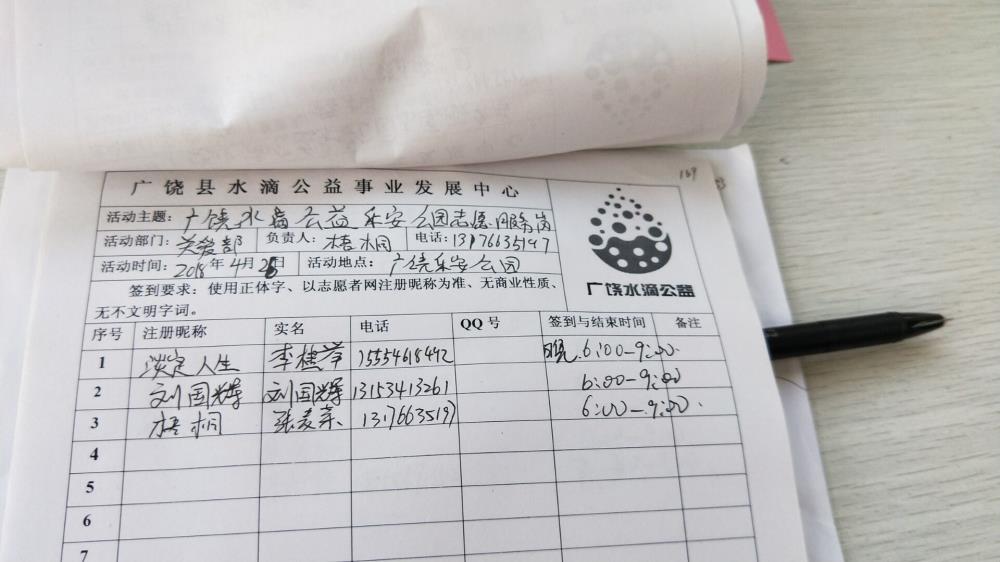 169
广饶县水滴公益事业发展中心
活动主题：广饶水滴公益乐安公园志愿服务岗
活动部门：关爱部 负责人：梧桐 电话：13176635197
活动时间：2018年4月28日 活动地点：广饶乐安公园
签到要求：使用正体字、以志愿者网注册昵称为准、无商业性质、
无不文明字词。
广饶水滴公益
序号 注册昵称 实名 电话 QQ号 签到与结束时间 备注
1 淡定人生 李桂芹 15554618492 晚6:00-9:00
2 刘国辉 刘国辉 13153413261 6:00-9:00
3 梧桐 13176635197 6:00-9:00
4
5
6
7